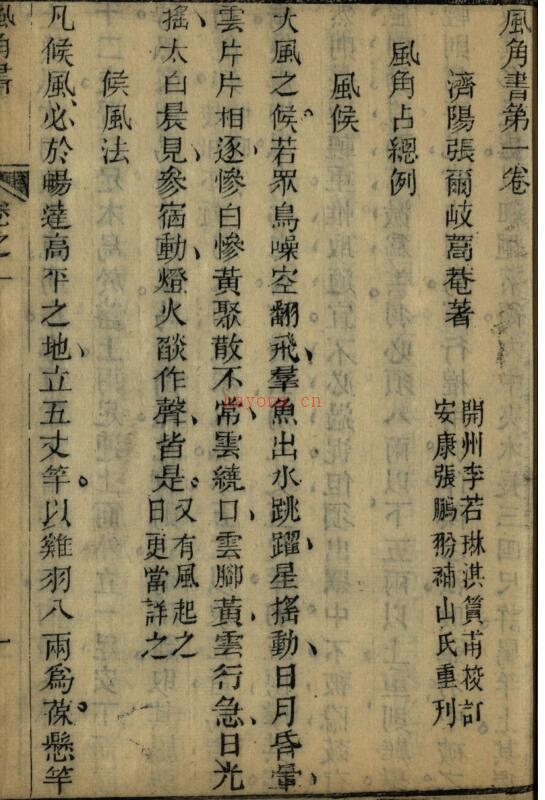 風角書第一卷
濟陽張爾岐蒿菴著
開州李若琳淇篔甫校訂
安康張鵬翂補山氏重刊
風角占總例
風候
大風之候若眾鳥噪空翻飛羣魚出水跳躍星搖動日月昏暈
雲片片相逐慘白慘黃聚散不常雲繞口雲腳黃雲行急日光
搖太白晨見參宿動燈火燄作聲皆是又有風起之
日更當詳之
候風法
凡候風必於暢達高平之地立五丈竿以雞羽八兩為葆懸竿
hayoug.cn